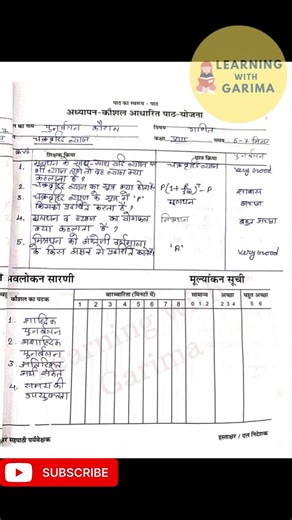 LEARNING
WITH
GARIMA
पाठ का स्वरूप - पाठ
अध्यापन-कौशल आधारित पाठ-योजना
न का नाम पुनर्बलन कौशल विषय गणित
चक्रवृद्धि ब्याज कक्षा समय 5-7 मिनट
क्रम शिक्षक क्रिया छात्र क्रिया पुनर्बलन
1. मूलधन के साथ-साथ यदि ब्याज पर
भी ब्याज लगे तो वह ब्याज क्या
कहलाता है? चक्रवृद्धि ब्याज Very Good
2. चक्रवृद्धि ब्याज का सूत्र क्या होगा? शाबास
3. चक्रवृद्धि ब्याज के सूत्र में 'P'
किसको प्रदर्शित करता है? मूलधन अच्छा
4. मूलधन व ब्याज का योगफल
क्या कहलाता है? मिश्रधन बहुत अच्छा
5. मिश्रधन को अंग्रेजी वर्णमाला
के किस अक्षर से प्रदर्शित करेंगे? 'A' Very Good
अवलोकन सारणी मूल्यांकन सूची
कौशल का घटक बारम्बारिता (मिनटों में) सामान्य अच्छा बहुत अच्छा
1 2 3 4 5 6 7 8 0 1 2 2 3 4 5 6
1. शाब्दिक
पुनर्बलन
2. अशाब्दिक
पुनर्बलन
3. अतिरिक्त
4. समय की
उपयुक्तता
Learning With
Garima
सहपाठी पर्यवेक्षक हस्ताक्षर / दल निर्देशक
SUBSCRIBE